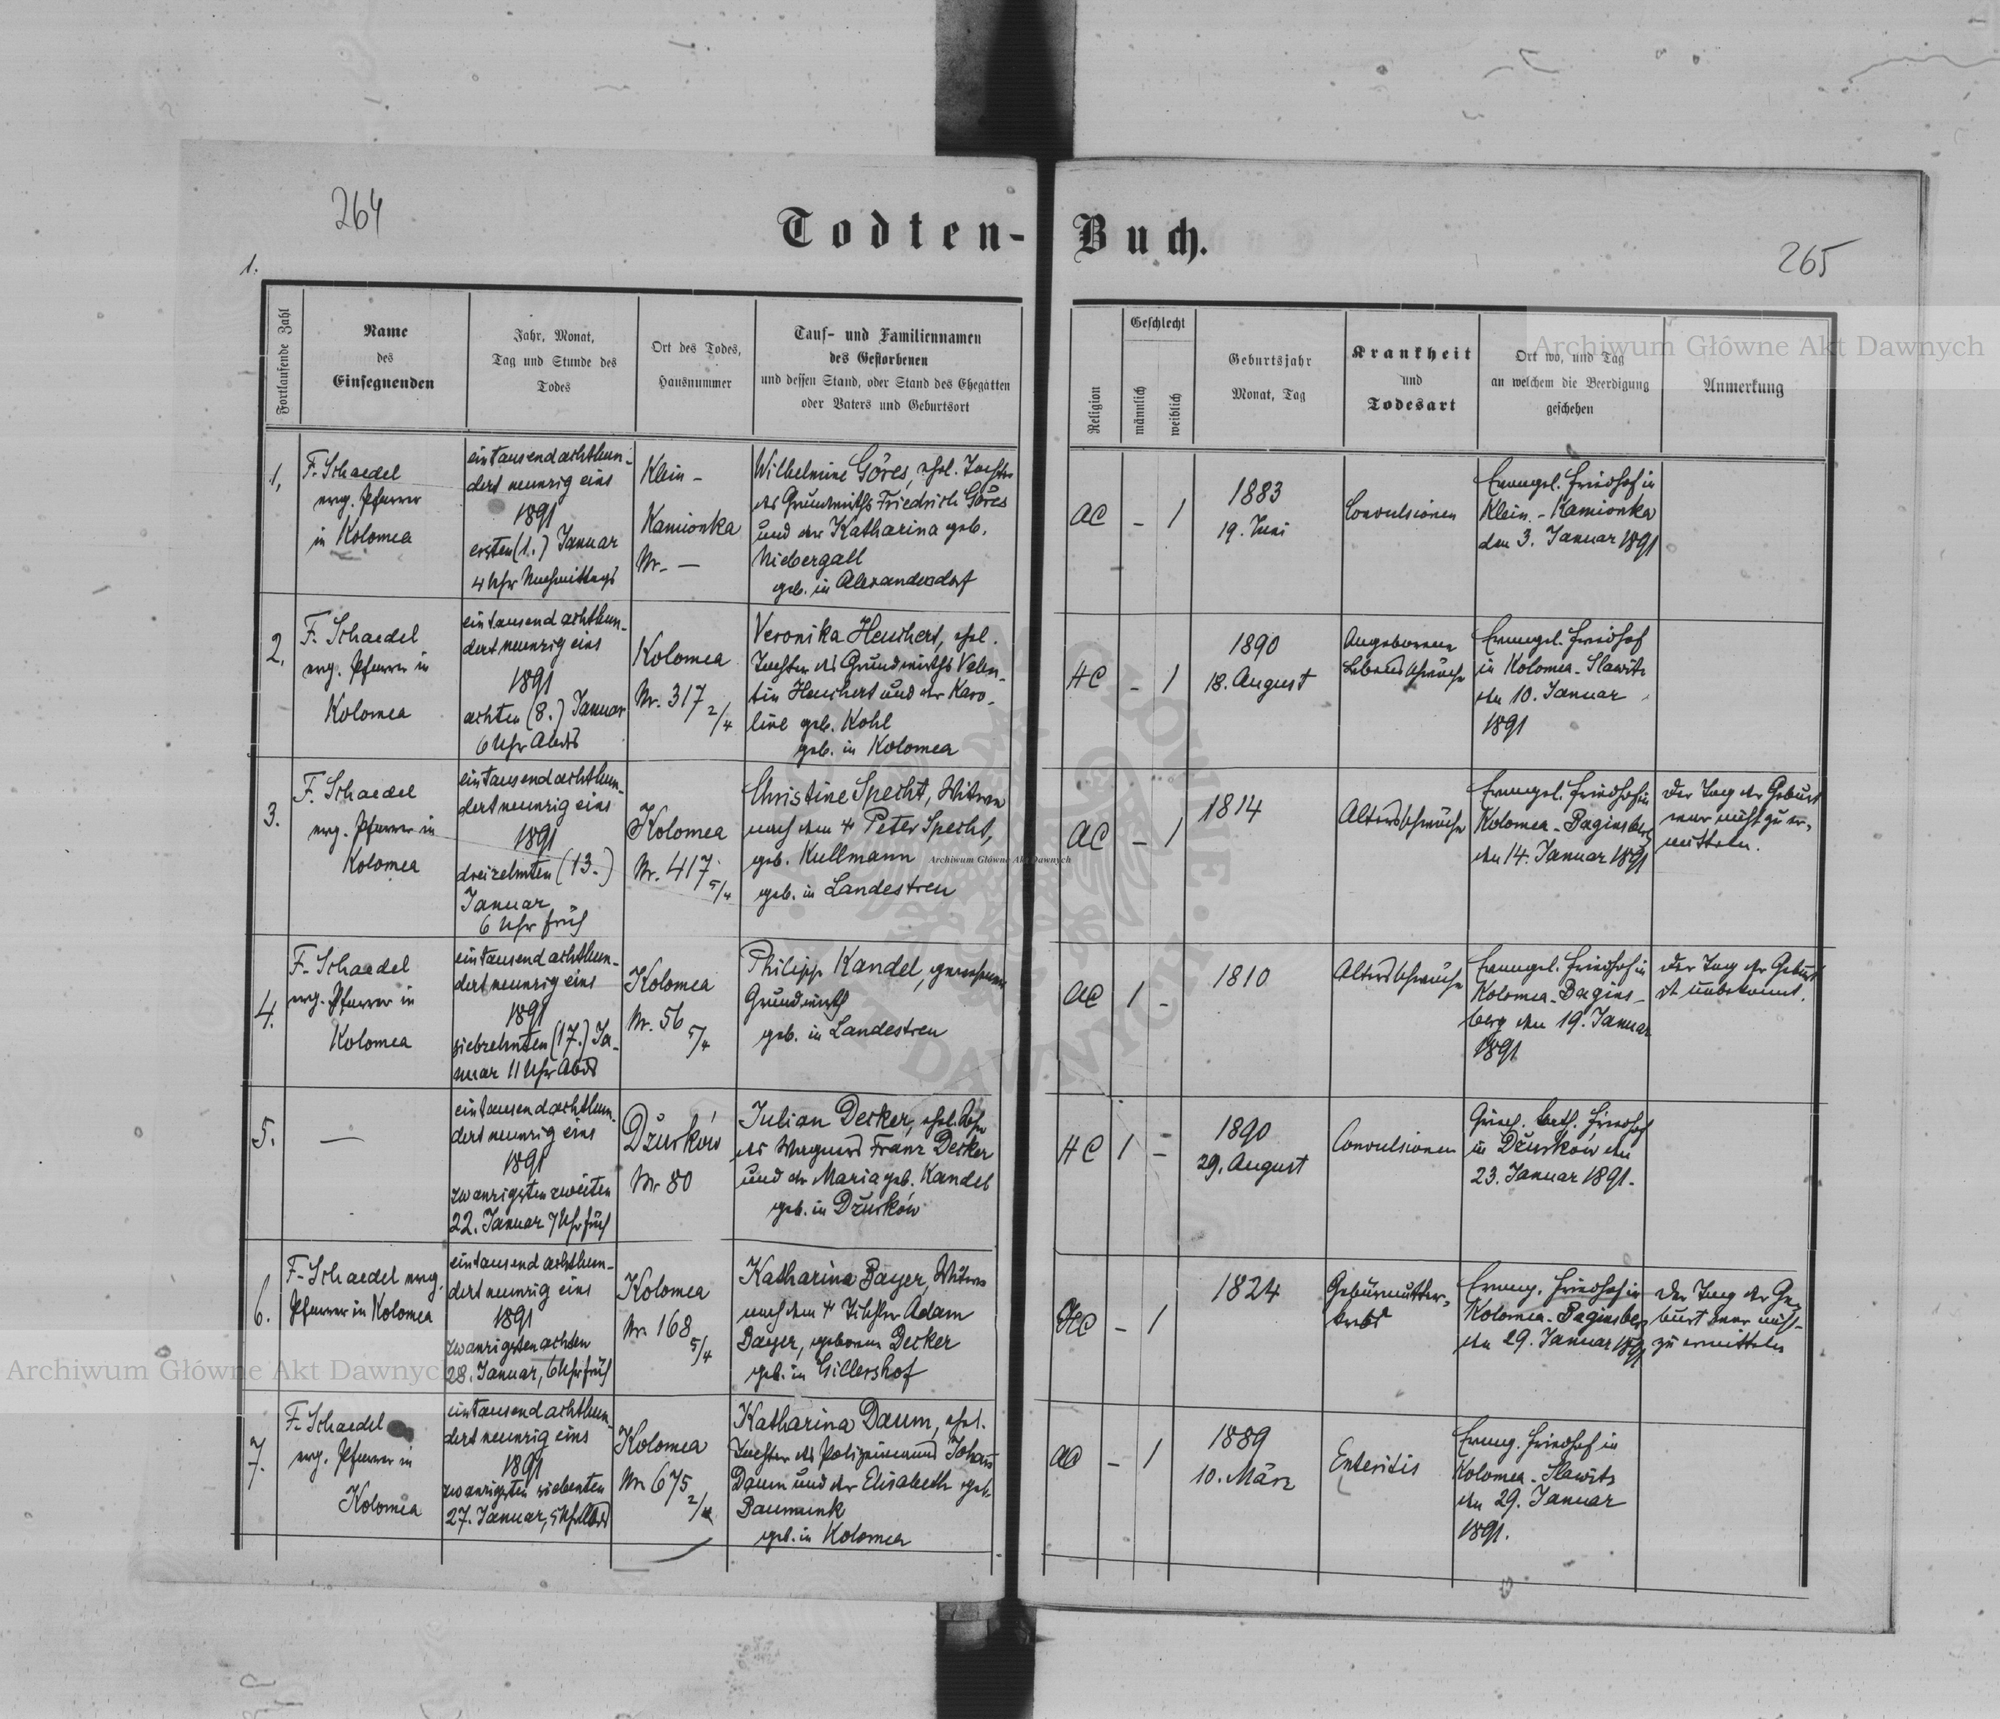 264
Todten-Buch.
265
1.
Fortlaufende Zahl
Name
des
Einsegnenden
Jahr, Monat,
Tag und Stunde des
Todes
Ort des Todes,
Hausnummer
Tauf- und Familiennamen
des Gestorbenen
und dessen Stand, oder Stand des Ehegatten
oder Vaters und Geburtsort
Religion
Geschlecht
männlich
weiblich
Geburtsjahr
Monat, Tag
Krankheit
und
Todesart
Ort wo, und Tag
an welchem die Beerdigung
geschehen
Anmerkung
1,
F. Schaedel
evg. Pfarrer
in Kolomea
eintausendachthun-
dert neunzig eins
1891
ersten (1.) Januar
4 Uhr Nachmittags
Klein-
Kamionka
Nr. —
Wilhelmine Göres, ehel. Tochter
des Grundwirths Friedrich Göres
und der Katharina geb.
Niebergall
geb. in Alexandersdorf
AC
-
1
1883
19. Juni
Convulsionen
Evangel. Friedhof in
Klein-Kamionka
den 3. Januar 1891
2.
F. Schaedel
evg. Pfarrer in
Kolomea
eintausend achthun-
dert neunzig eins
1891
achten (8.) Januar
6 Uhr Abds
Kolomea
Nr. 317 2/4
Veronika Heuchert, ehel.
Tochter des Grundwirths Valen-
tin Heuchert und der Karo-
line geb. Kohl
geb. in Kolomea
HC
-
1
1890
18. August
Angeborene
Lebensschwäche
Evangel. Friedhof
in Kolomea-Slawitz
den 10. Januar
1891
3.
F. Schaedel
evg. Pfarrer in
Kolomea
eintausendachthun-
dert neunzig eins
1891
dreizehnten (13.)
Januar
6 Uhr früh
Kolomea
Nr. 417 5/4
Christine Specht, Witwe
nach dem + Peter Specht,
geb. Kullmann
geb. in Landestreu
AC
-
1
1814
Altersschwäche
Evangel. Friedhof in
Kolomea-Baginsberg
den 14. Januar 1891
Der Tag der Geburt
war nicht zu er-
mitteln.
4.
F. Schaedel
evg. Pfarrer in
Kolomea
eintausend achthun-
dert neunzig eins
1891
siebzehnten (17.) Ja-
nuar 11 Uhr Abds
Kolomea
Nr. 56 5/4
Philipp Kandel, gewesener
Grundwirth
geb. in Landestreu
AC
1
-
1810
Altersschwäche
Evangel. Friedhof in
Kolomea-Bagins-
berg den 19. Januar
1891
Der Tag der Geburt
ist unbekannt.
5.
—
eintausend achthun-
dert neunzig eins
1891
zwanzigsten zweiten
22. Januar 7 Uhr früh
Dżurków
Nr 80
Julian Decker, ehel. Sohn
des Wagners Franz Decker
und der Maria geb. Kandel
geb. in Dżurków
HC
1
-
1890
29. August
Convulsionen
Griech. kath. Friedhof
in Dżurków den
23. Januar 1891.
6.
F. Schaedel evg.
Pfarrer in Kolomea
eintausend achthun-
dert neunzig eins
1891
zwanzigsten achten
28. Januar, 6 Uhr früh
Kolomea
Nr. 168 5/4
Katharina Bayer, Witwe
nach dem + Tischler Adam
Bayer, geborene Decker
geb. in Gillershof
HC
-
1
1824
Gebärmutter-
krebs
Evang. Friedhof in
Kolomea-Baginsberg
den 29. Januar 1891
Der Tag der Ge-
burt war nicht
zu ermitteln
7.
F. Schaedel
evg. Pfarrer in
Kolomea
eintausend achthun-
dert neunzig eins
1891
zwanzigsten siebenten
27. Januar, 5 Uhr Abds
Kolomea
Nr 675 2/4
Katharina Daum, ehel.
Tochter des Polizeimanns Johann
Daum und der Elisabeth geb.
Baumunk
geb. in Kolomea
AC
-
1
1889
10. März
Enteritis
Evang. Friedhof in
Kolomea-Slawitz
den 29. Januar
1891.
Archiwum Główne Akt Dawnych
Archiwum Główne Akt Dawnych
Archiwum Główne Akt Dawnych